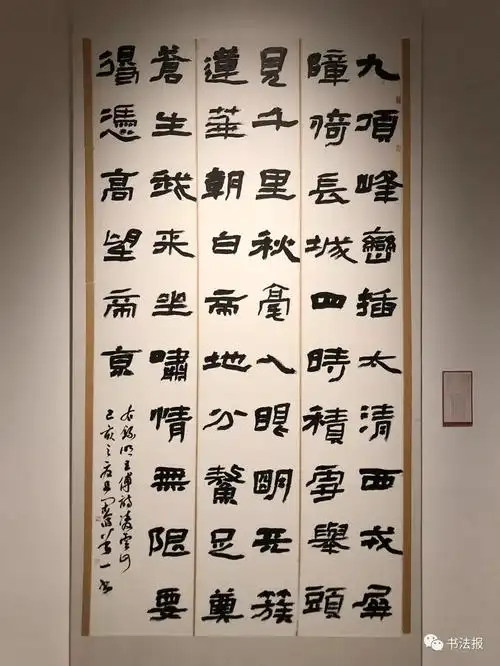 九頂峰巒插太清西戎屏
障倚長城四時積雪舉頭
見千里秋毫入眼明天簇
蓮華朝白帝地分鰲足奠
蒼生我來坐嘯情無限要
得憑高望帝京
右錄明王傅詩凌雲
己亥之夏月
书法报